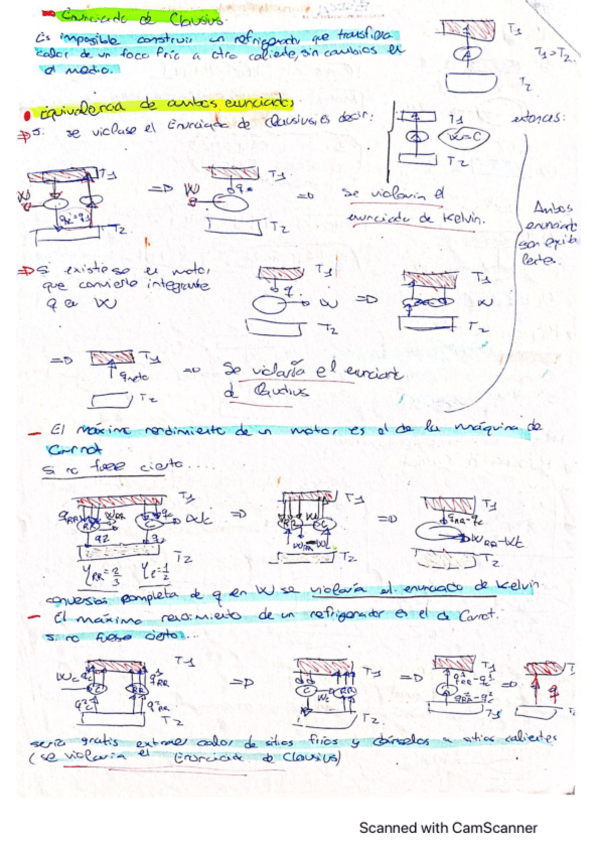 Enunciado de Clausius.
Es imposible construir un refrigerador que transfiera
calor de un foco frío a otro caliente, sin cambios en
el medio.
T1
T1>T2.
T2
Equivalencia de ambos enunciados
Si se violase el Enunciado de Clausius es decir:
T1
W=C
T2
entonces:
T1
W
T2
=D
W
T1
T2
=D
Se violaría el
enunciado de Kelvin.
Ambos
enunciados
son
Si existiese un motor
que convierte
q en W
T1
q
W
T2
=D
T1
W
T2
=D
T1
qneto
T2
=D
Se violaría el enunciado
de Claudius
- El máximo rendimiento de un motor es el de la máquina de
Carnot
Si no fuese cierto....
T1
qRR
WRR
qc
C
Wc
q2
T2
=D
T1
RR
C
T2
=D
T1
qRR-qc
WRR-Wc
T2
conversión completa de q en W se violaría el enunciado de Kelvin.
- El máximo rendimiento de un refrigerador es el de Carnot.
Si no fuese cierto...
Wc
T1
T2
=D
T1
C
RR
Wc
T2
=D
T1
=D
q
sería gratis extraer calor de sitios fríos y a sitios calientes
(se violaría el Enunciado de Clausius)
Scanned with CamScanner